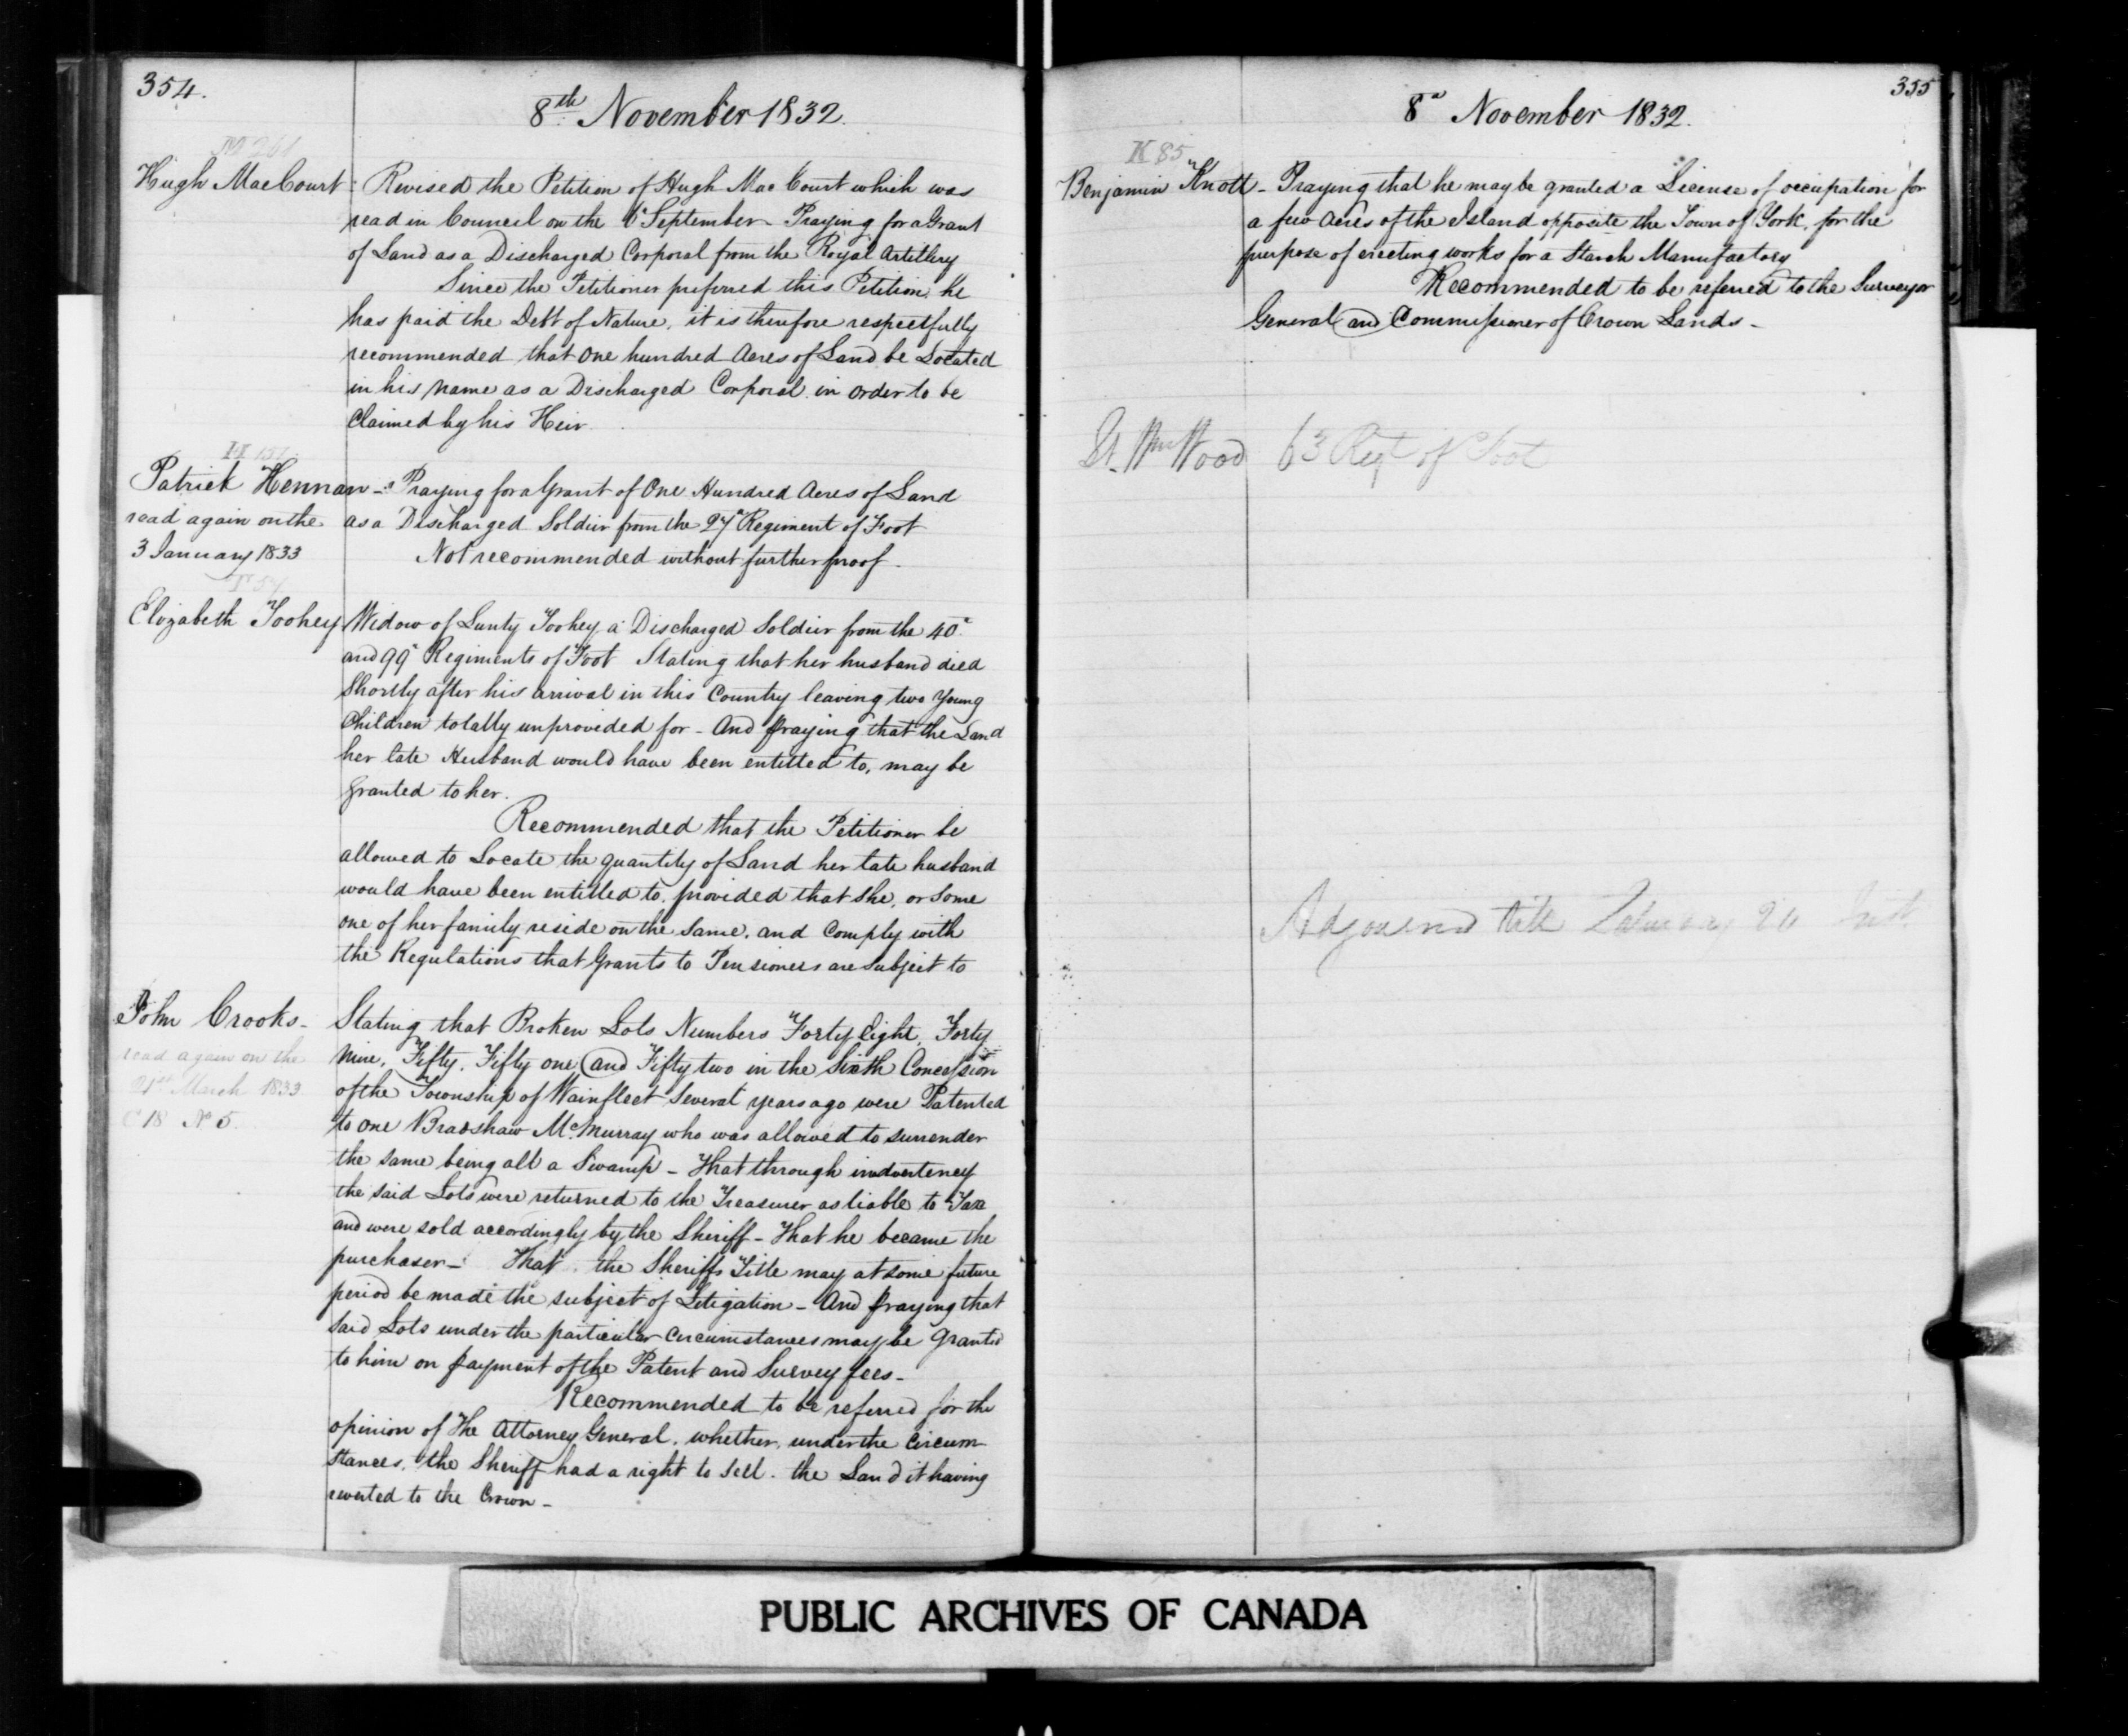 354.
8th November 1832.
M 261
Hugh MacCourt : Revised the Petition of Hugh MacCourt which was
read in Council on the 6th September - Praying for a Grant
of Land as a Discharged Corporal from the Royal Artillery
Since the Petitioner preferred this Petition, he
has paid the Debt of Nature, it is therefore respectfully
recommended that One hundred Acres of Land be Located
in his Name as a Discharged Corporal in order to be
Claimed by his Heir.
H 151
Patrick Hennan -: Praying for a Grant of One Hundred Acres of Land
read again on the
3 January 1833
as a Discharged Soldier from the 27th Regiment of Foot
Not recommended without further proof.
T 57
Elizabeth Toohey Widow of Lunty Toohey, a Discharged Soldier from the 40th
and 99th Regiments of Foot Stating that her husband died
Shortly after his arrival in this Country leaving two Young
Children totally unprovided for - And praying that the Land
her late Husband would have been entitled to, may be
granted to her.
Recommended that the Petitioner be
allowed to Locate the quantity of Land her late husband
would have been entitled to, provided that she, or some
one of her family reside on the Same, and Comply with
the Regulations that Grants to Pensioners are subject to
John Crooks -
read again on the
21st March 1833
C 18 No 5.
Stating that Broken Lots Numbers Forty eight, Forty
nine, Fifty, Fifty one, and Fifty two in the Sixth Concession
of the Township of Wainfleet Several years ago were Patented
to one Bradshaw McMurray who was allowed to surrender
the same being all a Swamp - That through inadvertency
the said Lots were returned to the Treasurer as liable to Tax
and were sold accordingly by the Sheriff - That he became the
purchaser - That the Sheriffs Title may at some future
period be made the subject of Litigation - And praying that
Said Lots under the particular circumstances may be granted
to him on payment of the Patent and Survey fees -
Recommended to be referred for the
opinion of The Attorney General, whether, under the circum
stances, the Sheriff had a right to sell. the Land it having
reverted to the Crown -
355
8th November 1832.
K 85
Benjamin Knott - Praying that he may be granted a License of occupation for
a few Acres of the Island opposite the Town of York, for the
purpose of erecting works for a Starch Manufactory
Recommended to be referred to the Surveyor
General and Commissioner of Crown Lands -
Lt. Wm Wood 63 Regt of Foot
Adjourned till Saturday Inst.
PUBLIC ARCHIVES OF CANADA